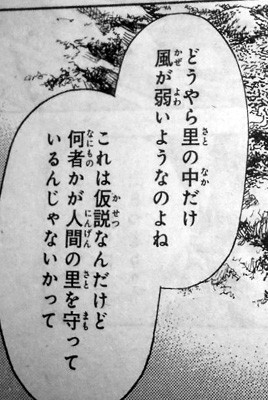 どうやら里の中だけ
風が弱いようなのよね
これは仮説なんだけど
何者かが人間の里を守って
いるんじゃないかって